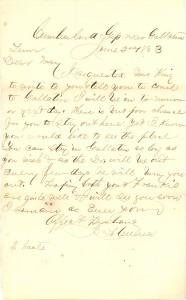 Cumberland Gap near Gallatin
Tenn June 24 1863
Dear May
I requested Mrs King
to write to you & tell you to come
to Gallatin I will be in to morrow
or next day. There is but poor chance
for you to stay out here, yet I know
you would like to see the place
You can stay in Gallatin as long as
you wish & as the Dr will be out
every few days he will bring you
out. Hoping both you & Frankie
are quite well & will see you soon
I remain as Ever your
Affect Husband
In haste